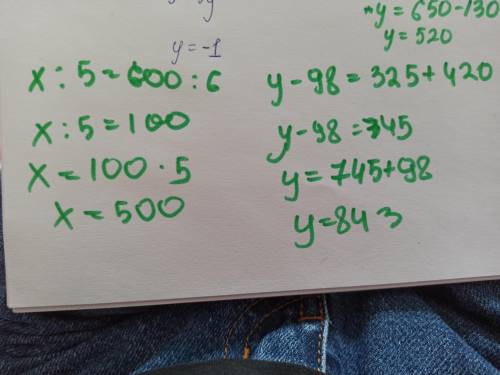 y = 650 - 130
y = 520
y = -1
x : 5 = 600 : 6
x : 5 = 100
x = 100 · 5
x = 500
y - 98 = 325 + 420
y - 98 = 745
y = 745 + 98
y = 843